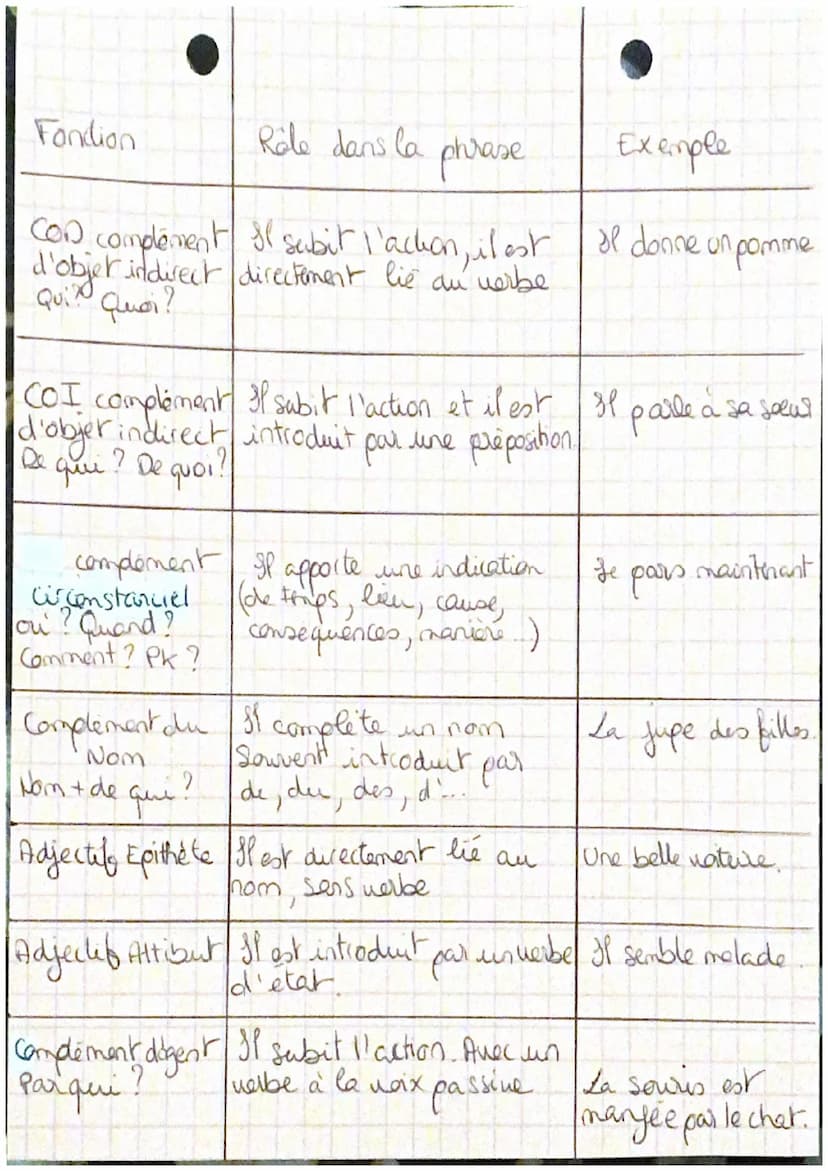 Fonction
Rôle dans la phrase
Exemple
COD complément
d'objet indirect
Qui? Quoi?
Il subit l'action, il est
directement lié au verbe
Il donne un pomme
COI complément
d'objet indirect
De qui? De quoi?
Il subit l'action et il est
introduit par une préposition.
Il parle à sa soeur
complément
circonstanciel
où? Quand?
Comment? PK?
Il apporte une indication
(de temps, lieu, cause,
conséquences, manière...)
Je pars maintenant
Complément du
Nom
Nom + de qui?
Il complète un nom
Souvent introduit par
de, du, des, d'...
La jupe des filles.
Adjectif Epithète
Il est directement lié au
nom, sans verbe
Une belle voiture.
Adjectif Attribut
Il est introduit par un verbe
d'état.
Il semble malade.
Complément d'agent
Par qui?
Il subit l'action. Avec un
verbe à la voix passive
La souris est
mangée par le chat.